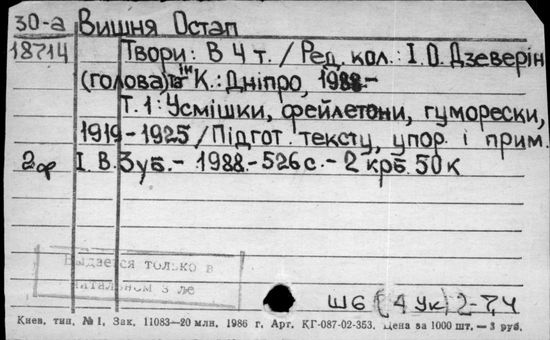 30-а Вишня Остап
18714 Твори: В 4 т. / Ред. кол.: І. О. Дзеверін
(голова) та ін К.: Дніпро, 1988-
Т. 1: Усмішки, фейлетони, гуморески,
1919-1925 / Підгот. тексту, упор. і прим.
2ф І. В. Зуб. - 1988. - 526 с. - 2 крб. 50 к
Выдается только в
читальном з ле
Ш6(4Ук)2-7,4
Киев. тип. № 1, Зак. 11083—20 млн. 1986 г. Арт. КГ-087-02-353. Цена за 1000 шт. — 3 руб.